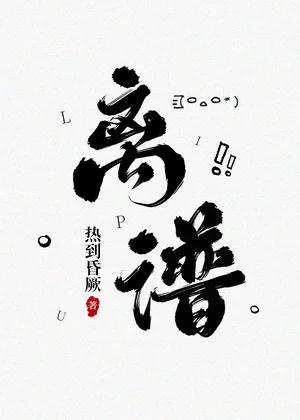 离谱
!!
L
I
P
U
热到昏厥
著